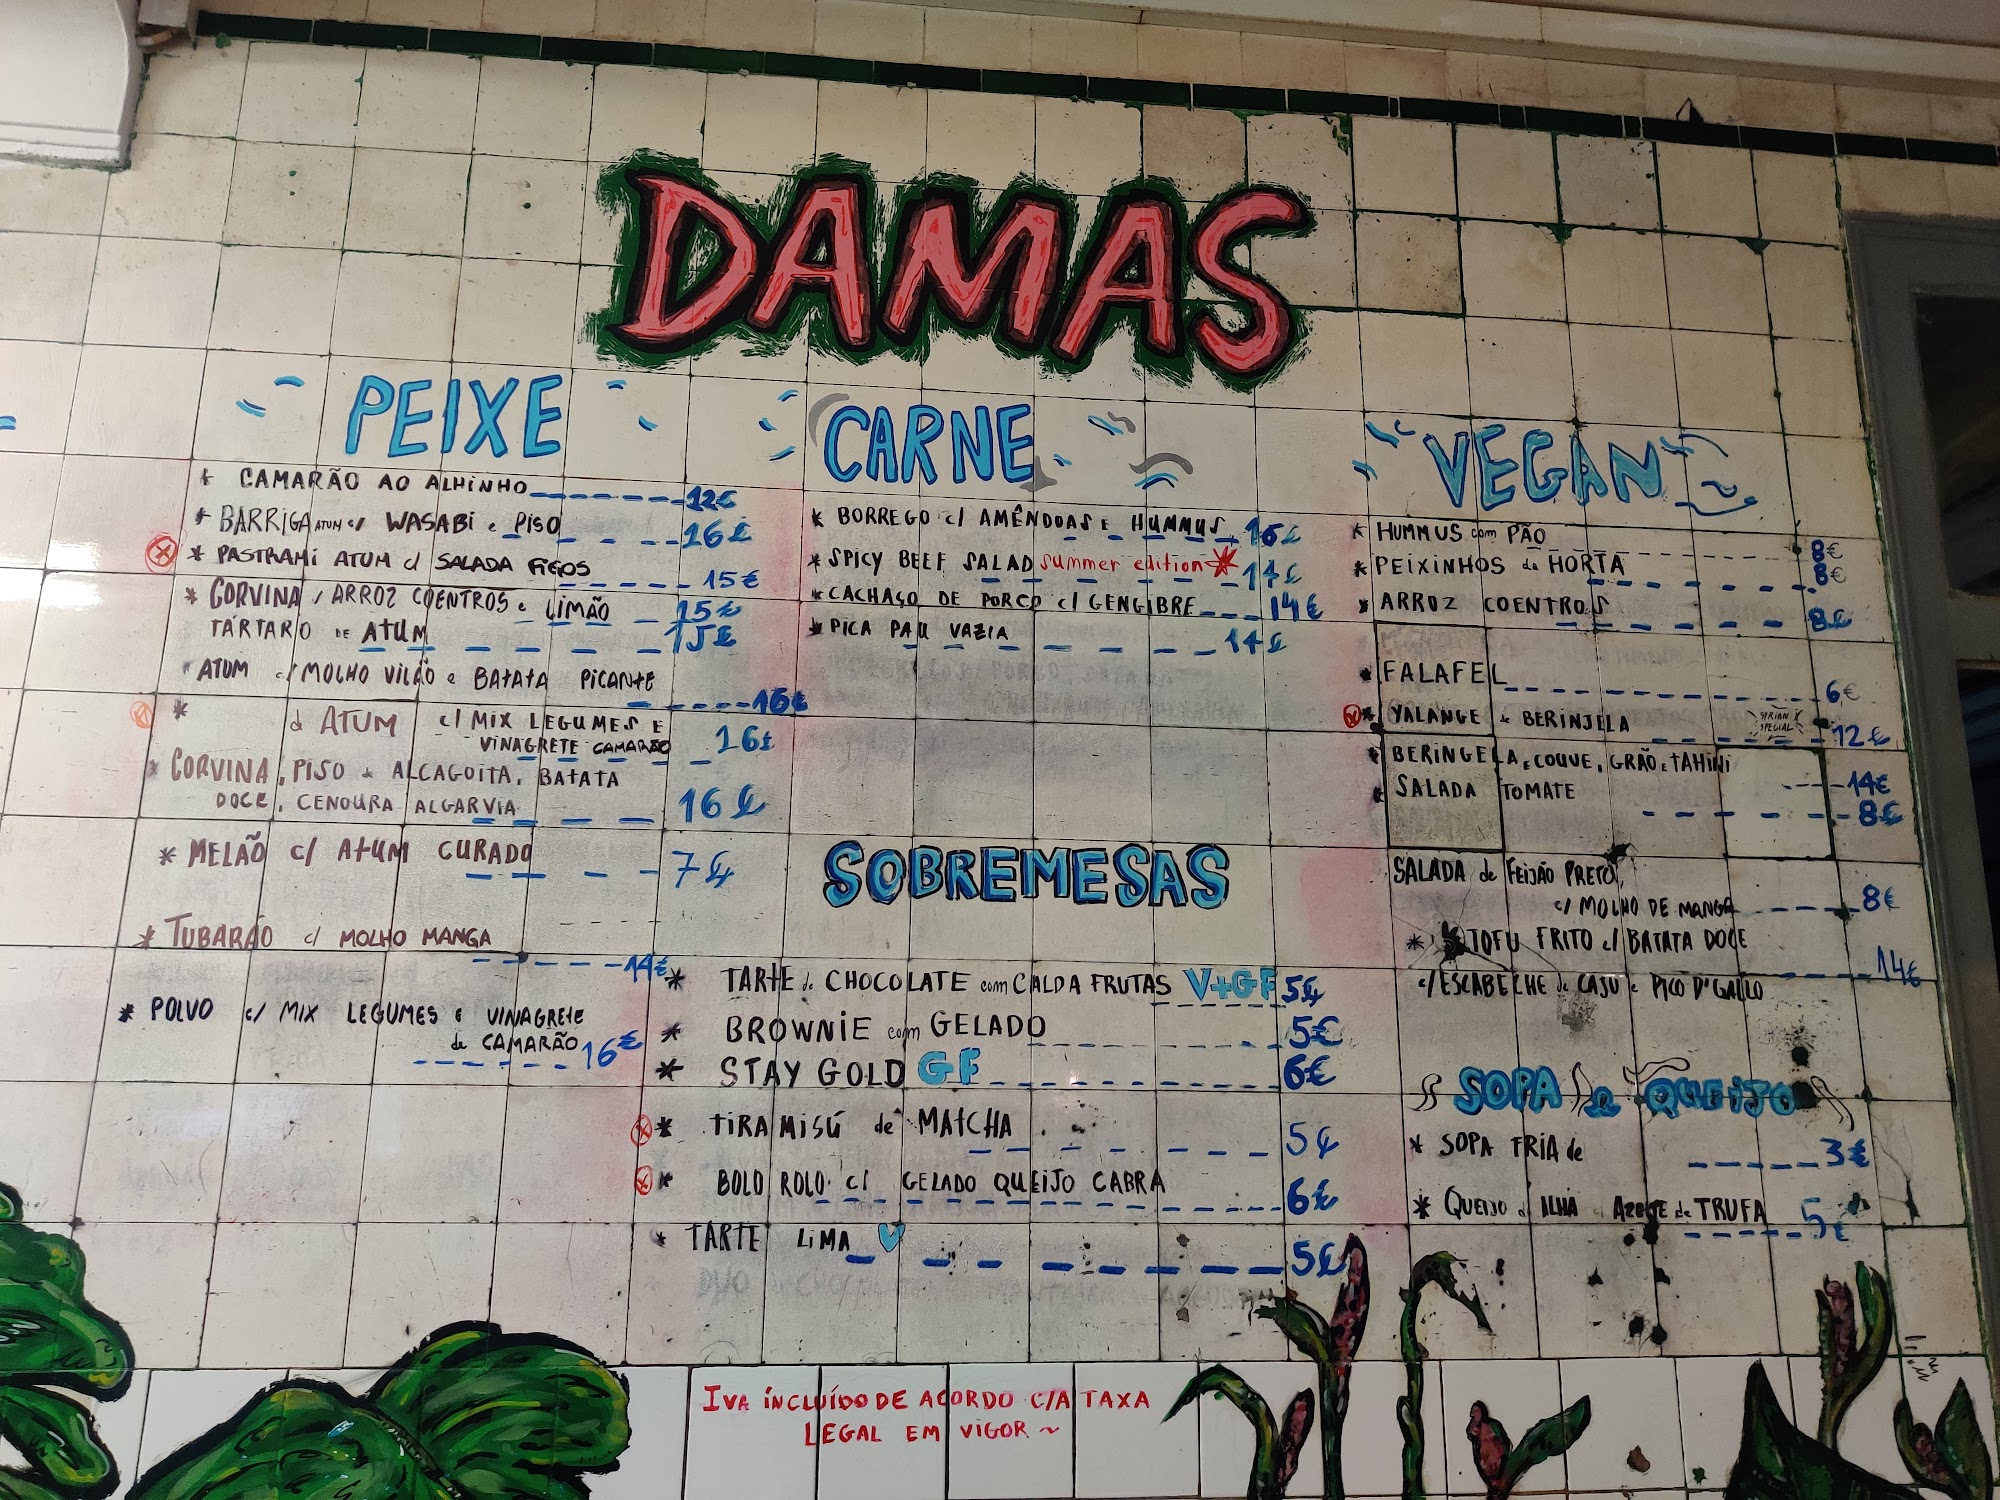 DAMAS
PEIXE
* CAMARÃO AO ALHINHO 12€
* BARRIGA ATUM c/ WASABI e PISO 16€
* PASTRAMI ATUM c/ SALADA FIGOS 15€
* CORVINA, ARROZ COENTROS e LIMÃO 15€
TÁRTARO DE ATUM 15€
* ATUM c/ MOLHO VILÃO e BATATA PICANTE
16€
* d ATUM c/ MIX LEGUMES E
VINAGRETE CAMARÃO 16€
* CORVINA, PISO de ALCAGOITA, BATATA
DOCE, CENOURA ALGARVIA 16€
* MELÃO c/ ATUM CURADO 7€
* TUBARÃO c/ MOLHO MANGA
14€
* POLVO c/ MIX LEGUMES e VINAGRETE
de CAMARÃO 16€
CARNE
* BORREGO c/ AMÊNDOAS E HUMMUS 16€
* SPICY BEEF SALAD summer edition 14€
* CACHAÇO DE PORCO c/ GENGIBRE 14€
* PICA PAU VAZIA 14€
SOBREMESAS
* TARTE de CHOCOLATE com CALDA FRUTAS V+GF 5€
* BROWNIE com GELADO 5€
* STAY GOLD GF 6€
* TIRAMISÚ de MATCHA 5€
* BOLO ROLO c/ GELADO QUEIJO CABRA 6€
* TARTE LIMA 5€
VEGAN
* HUMMUS com PÃO 8€
* PEIXINHOS da HORTA 8€
* ARROZ COENTROS 8€
* FALAFEL 6€
* YALANGE de BERINJELA SYRIAN SPECIAL 12€
* BERINGELA E COUVE, GRÃO E TAHINI 14€
* SALADA TOMATE 8€
SALADA de FEIJÃO PRETO,
c/ MOLHO DE MANGA 8€
* TOFU FRITO c/ BATATA DOCE
14€
c/ ESCABECHE de CAJU e PICO D'GALLO
SOPA e QUEIJO
* SOPA FRIA de 3€
* QUEIJO d ILHA AZEITE de TRUFA 5€
IVA INCLUÍDO DE ACORDO C/A TAXA
LEGAL EM VIGOR ~